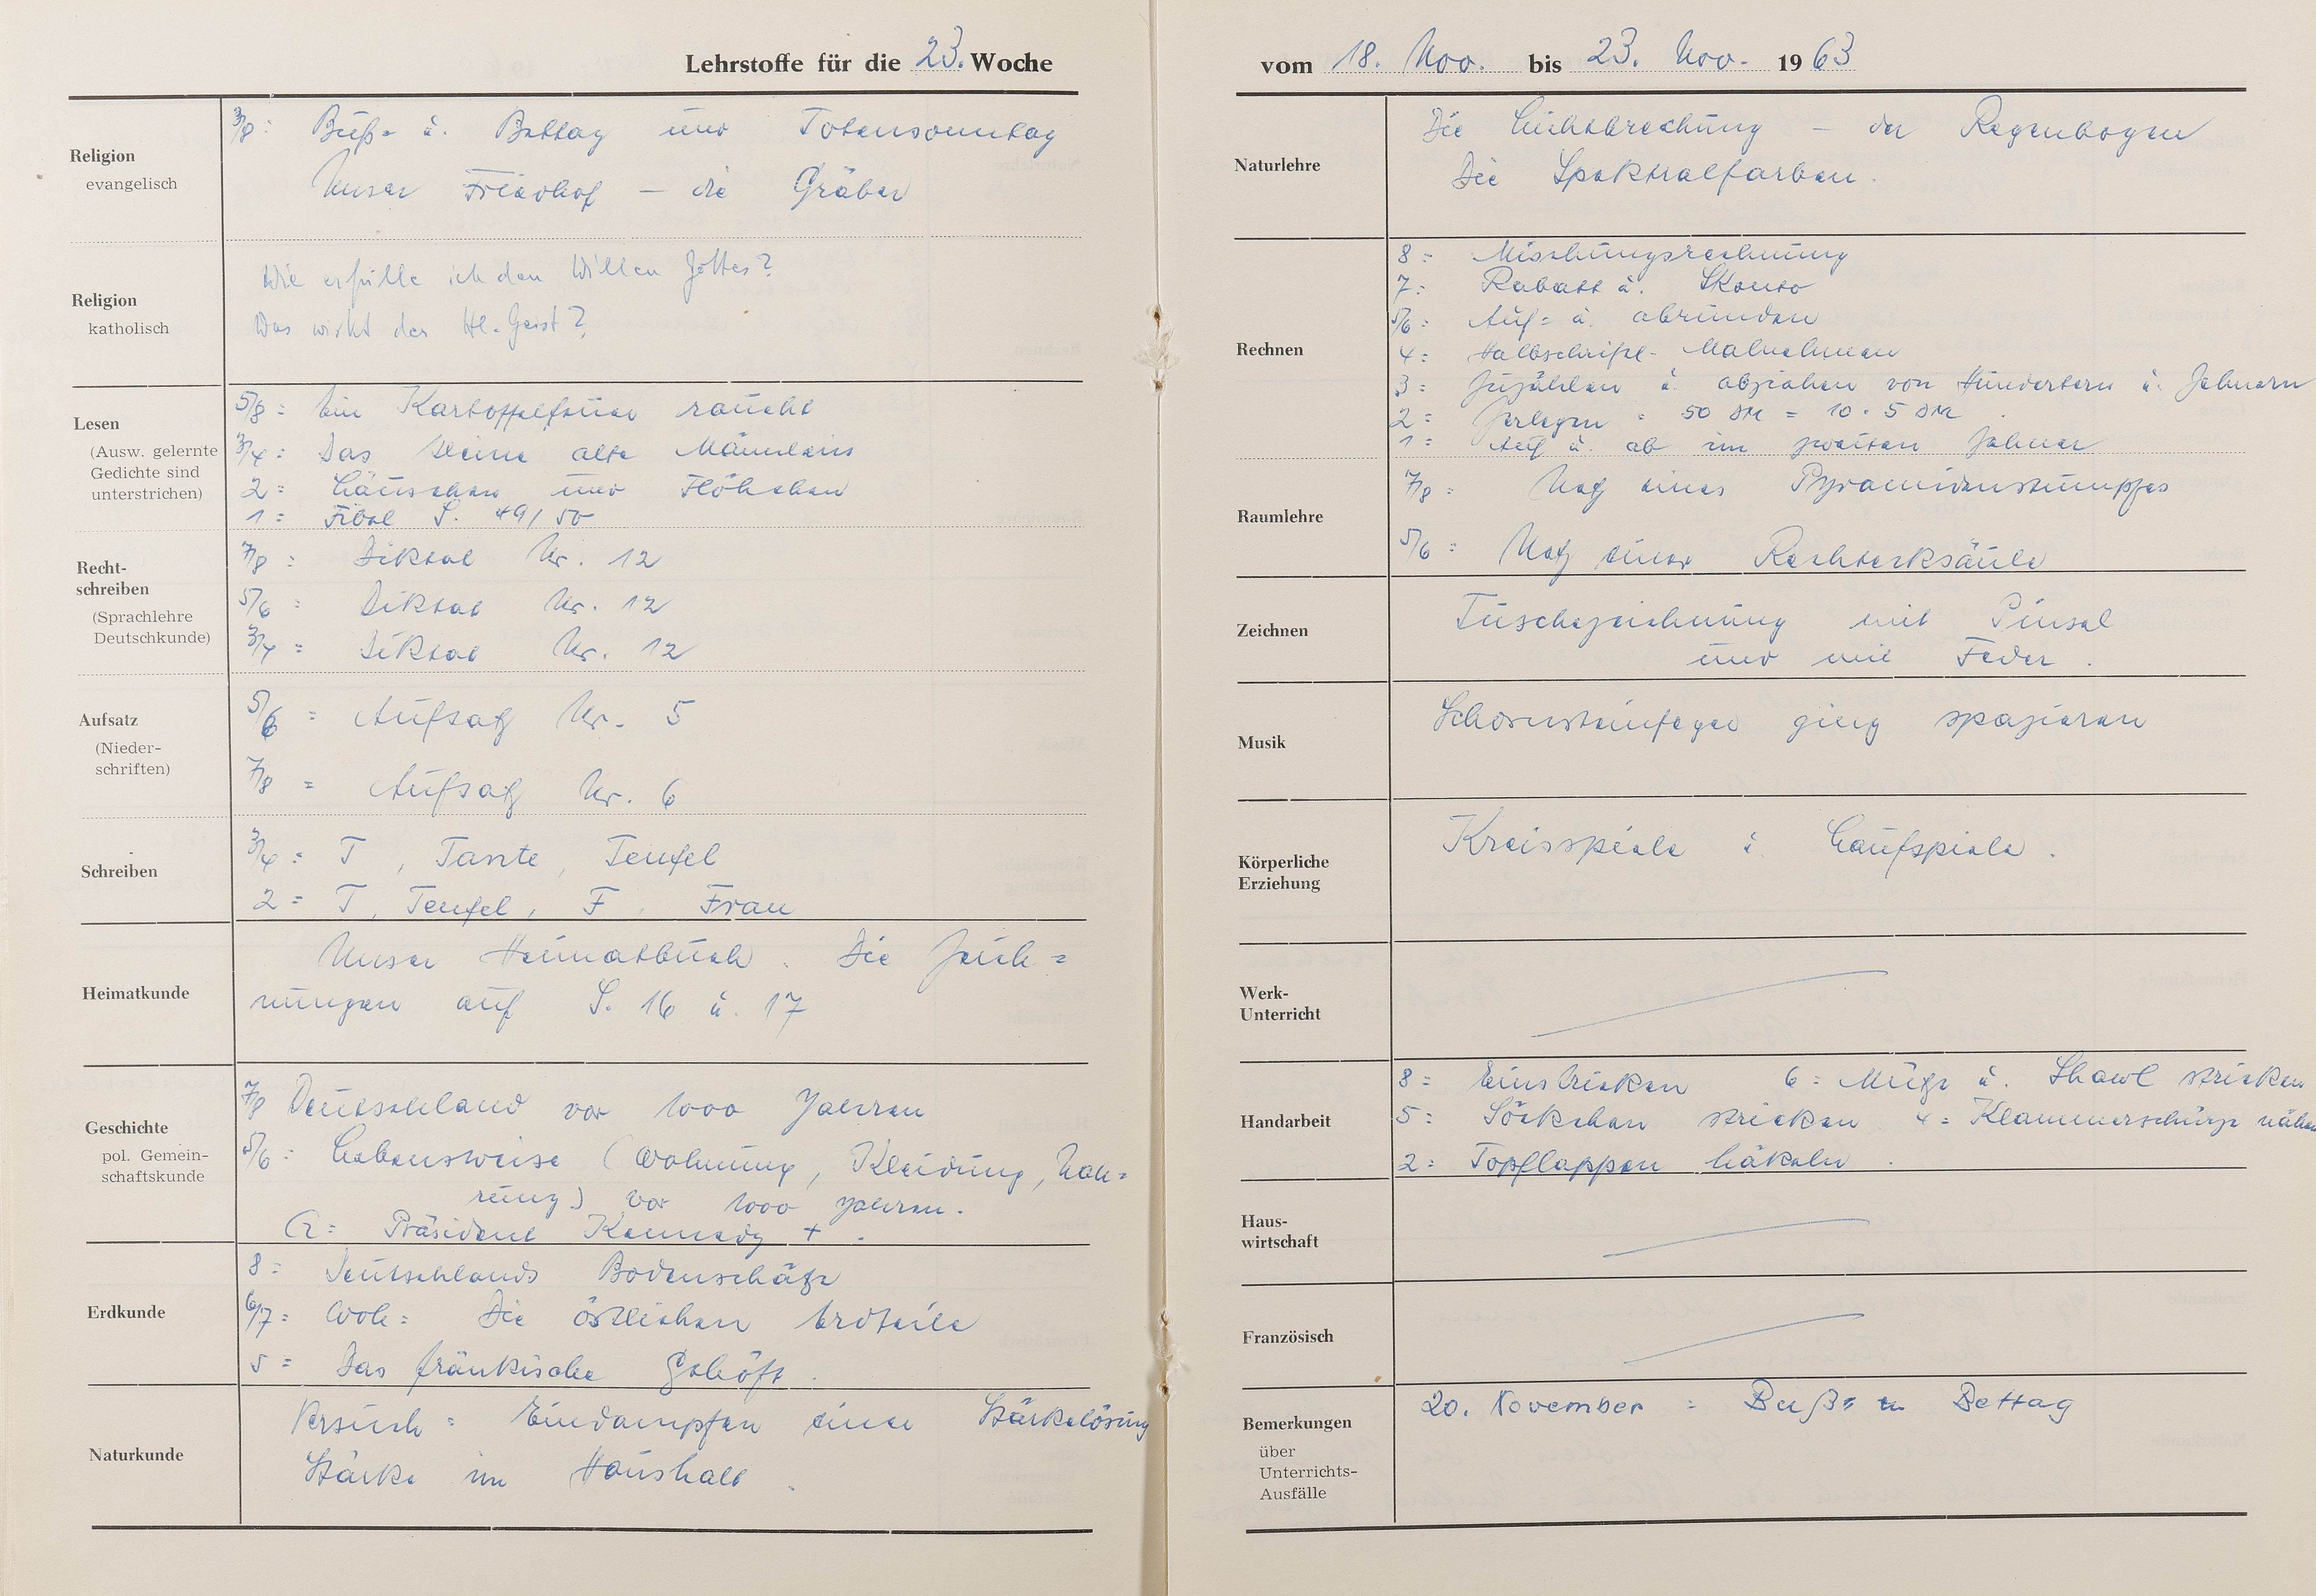 Lehrstoffe für die 23. Woche
Religion
evangelisch
3/8: Buß= u. Bettag und Totensonntag
Unser Friedhof – die Gräber
Religion
katholisch
Wie erfülle ich den Willen Gottes?
Was wirkt der Hl. Geist?
Lesen
(Ausw. gelernte
Gedichte sind
unterstrichen)
5/8: Ein Kartoffelfeuer raucht
3/4: Das kleine alte Männlein
2: Läuschen und Flöhchen
1: Fibel S. 49/50
Recht-
schreiben
(Sprachlehre
Deutschkunde)
7/8: Diktat Nr. 12
5/6: Diktat Nr. 12
3/4: Diktat Nr. 12
Aufsatz
(Nieder-
schriften)
5/6: Aufsatz Nr. 5
7/8: Aufsatz Nr. 6
Schreiben
3/4: T, Tante, Teufel
2: T, Teufel, F, Frau
Heimatkunde
Unser Heimatbuch. Die Zeich=
nungen auf S. 16 u. 17
Geschichte
pol. Gemein-
schaftskunde
7/8 Deutschland vor 1000 Jahren
5/6: Lebensweise (Wohnung, Kleidung, Nah=
rung) vor 1000 Jahren.
G: Präsident Kennedy +.
Erdkunde
8: Deutschlands Bodenschätze
6/7: Woh: Die östlichen Erdteile
5: Das fränkische Gehöft.
Naturkunde
Versuch: Eindampfen einer Stärkelösung
Stärke im Haushalt.
vom 18. Nov. bis 23. Nov. 1963
Naturlehre
Die Lichtbrechung – der Regenbogen
Die Spektralfarben.
Rechnen
8: Mischungsrechnung
7: Rabatt u. Skonto
5/6: Auf= u. abrunden
4: Halbschriftl. Malnehmen
3: Zuzählen u. abziehen von Hundertern u. Zehnern
2: Zerlegen: 50 DM = 10 · 5 DM.
1: Auf u. ab im zweiten Zehner
Raumlehre
7/8: Netz eines Pyramidenstumpfes
5/6: Netz einer Rechtecksäule
Zeichnen
Tuschezeichnung mit Pinsel
und mit Feder.
Musik
Schornsteinfeger ging spazieren
Körperliche
Erziehung
Kreisspiele u. Laufspiele.
Werk-
Unterricht
Handarbeit
8: Einstricken 6: Mütze u. Shawl stricken
5: Söckchen stricken 4: Klammerschürze nähen
2: Topflappen häkeln.
Haus-
wirtschaft
Französisch
Bemerkungen
über
Unterrichts-
Ausfälle
20. November: Buß= u Bettag